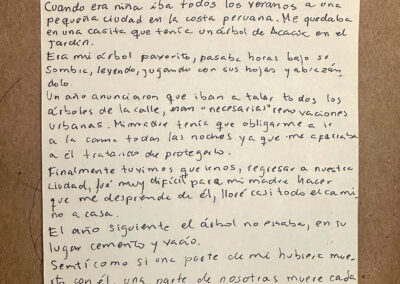 Cuando era niña iba todos los veranos a una
pequeña ciudad en la costa peruana. Me quedaba
en una casita que tenía un árbol de Acacia en el
Jardín.
Era mi árbol favorito, pasaba horas bajo su
sombra, leyendo, jugando con sus hojas y abrazán
dolo.
Un año anunciaron que iban a talar todos los
árboles de la calle, eran "necesarias" renovaciones
urbanas. Mi madre tenía que obligarme a ir
a la cama todas las noches ya que me aferraba
a él tratando de protegerlo.
Finalmente tuvimos que irnos, regresar a nuestra
ciudad, fué muy difícil para mi madre hacer
que me desprenda de él, lloré casi todo el cami
no a casa.
El año siguiente el árbol no estaba, en su
lugar cemento y vacío.
Sentí como si una parte de mi hubiera mue
rto con él, una parte de nosotras muere cada